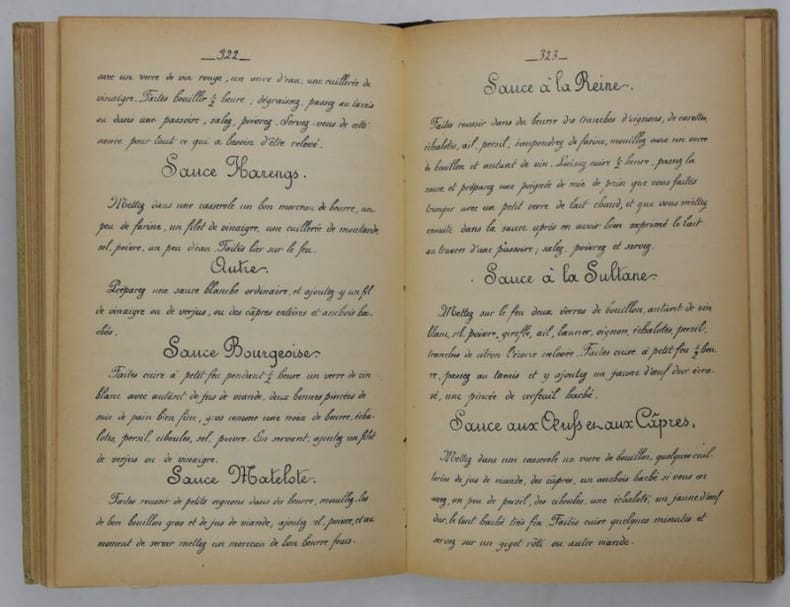 322
avec un verre de vin rouge, un verre d'eau, une cuillerée de
vinaigre. Faites bouillir ½ heure; dégraissez, passez au tamis
ou dans une passoire, salez, poivrez. Servez-vous de cette
sauce pour tout ce qui a besoin d'être relevé.
Sauce Harengs.
Mettez dans une casserole un bon morceau de beurre, un
peu de farine, un filet de vinaigre, une cuillerée de moutarde,
sel, poivre, un peu d'eau. Faites lier sur le feu.
Autre.
Préparez une sauce blanche ordinaire, et ajoutez-y un fil
de vinaigre ou de verjus, ou des câpres entières et anchois ha-
chés.
Sauce Bourgeoise.
Faites cuire à petit feu pendant ½ heure un verre de vin
blanc avec autant de jus de viande, deux bonnes pincées de
mie de pain bien fine, gros comme une noix de beurre, écha-
lotes, persil, ciboules, sel, poivre. En servant, ajoutez un filet
de verjus ou de vinaigre.
Sauce Matelote.
Faites roussir de petits oignons dans du beurre, mouillez-les
de bon bouillon gras et de jus de viande, ajoutez sel, poivre, et au
moment de servir mettez un morceau de bon beurre frais.
323
Sauce à la Reine.
Faites roussir dans du beurre des tranches d'oignons, de carottes,
échalotes, ail, persil, saupoudrez de farine, mouillez avec un verre
de bouillon et autant de vin. Laissez cuire ½ heure, passez la
sauce et préparez une poignée de mie de pain que vous faites
tremper avec un petit verre de lait chaud, et que vous mettez
ensuite dans la sauce après en avoir bien exprimé le lait
au travers d'une passoire; salez, poivrez et servez.
Sauce à la Sultane.
Mettez sur le feu deux verres de bouillon, autant de vin
blanc, sel, poivre, girofle, ail, laurier, oignon, échalotes, persil,
tranches de citron l'écorce enlevée. Faites cuire à petit feu ½ heu-
re, passez au tamis et y ajoutez un jaune d'œuf dur écra-
sé, une pincée de cerfeuil haché.
Sauce aux Œufs et aux Câpres.
Mettez dans une casserole un verre de bouillon, quelques cuil
lerées de jus de viande, des câpres, un anchois haché si vous en
avez, un peu de persil, des ciboules, une échalote, un jaune d'œuf
dur, le tout haché très fin. Faites cuire quelques minutes et
servez sur un gigot rôti ou autre viande.